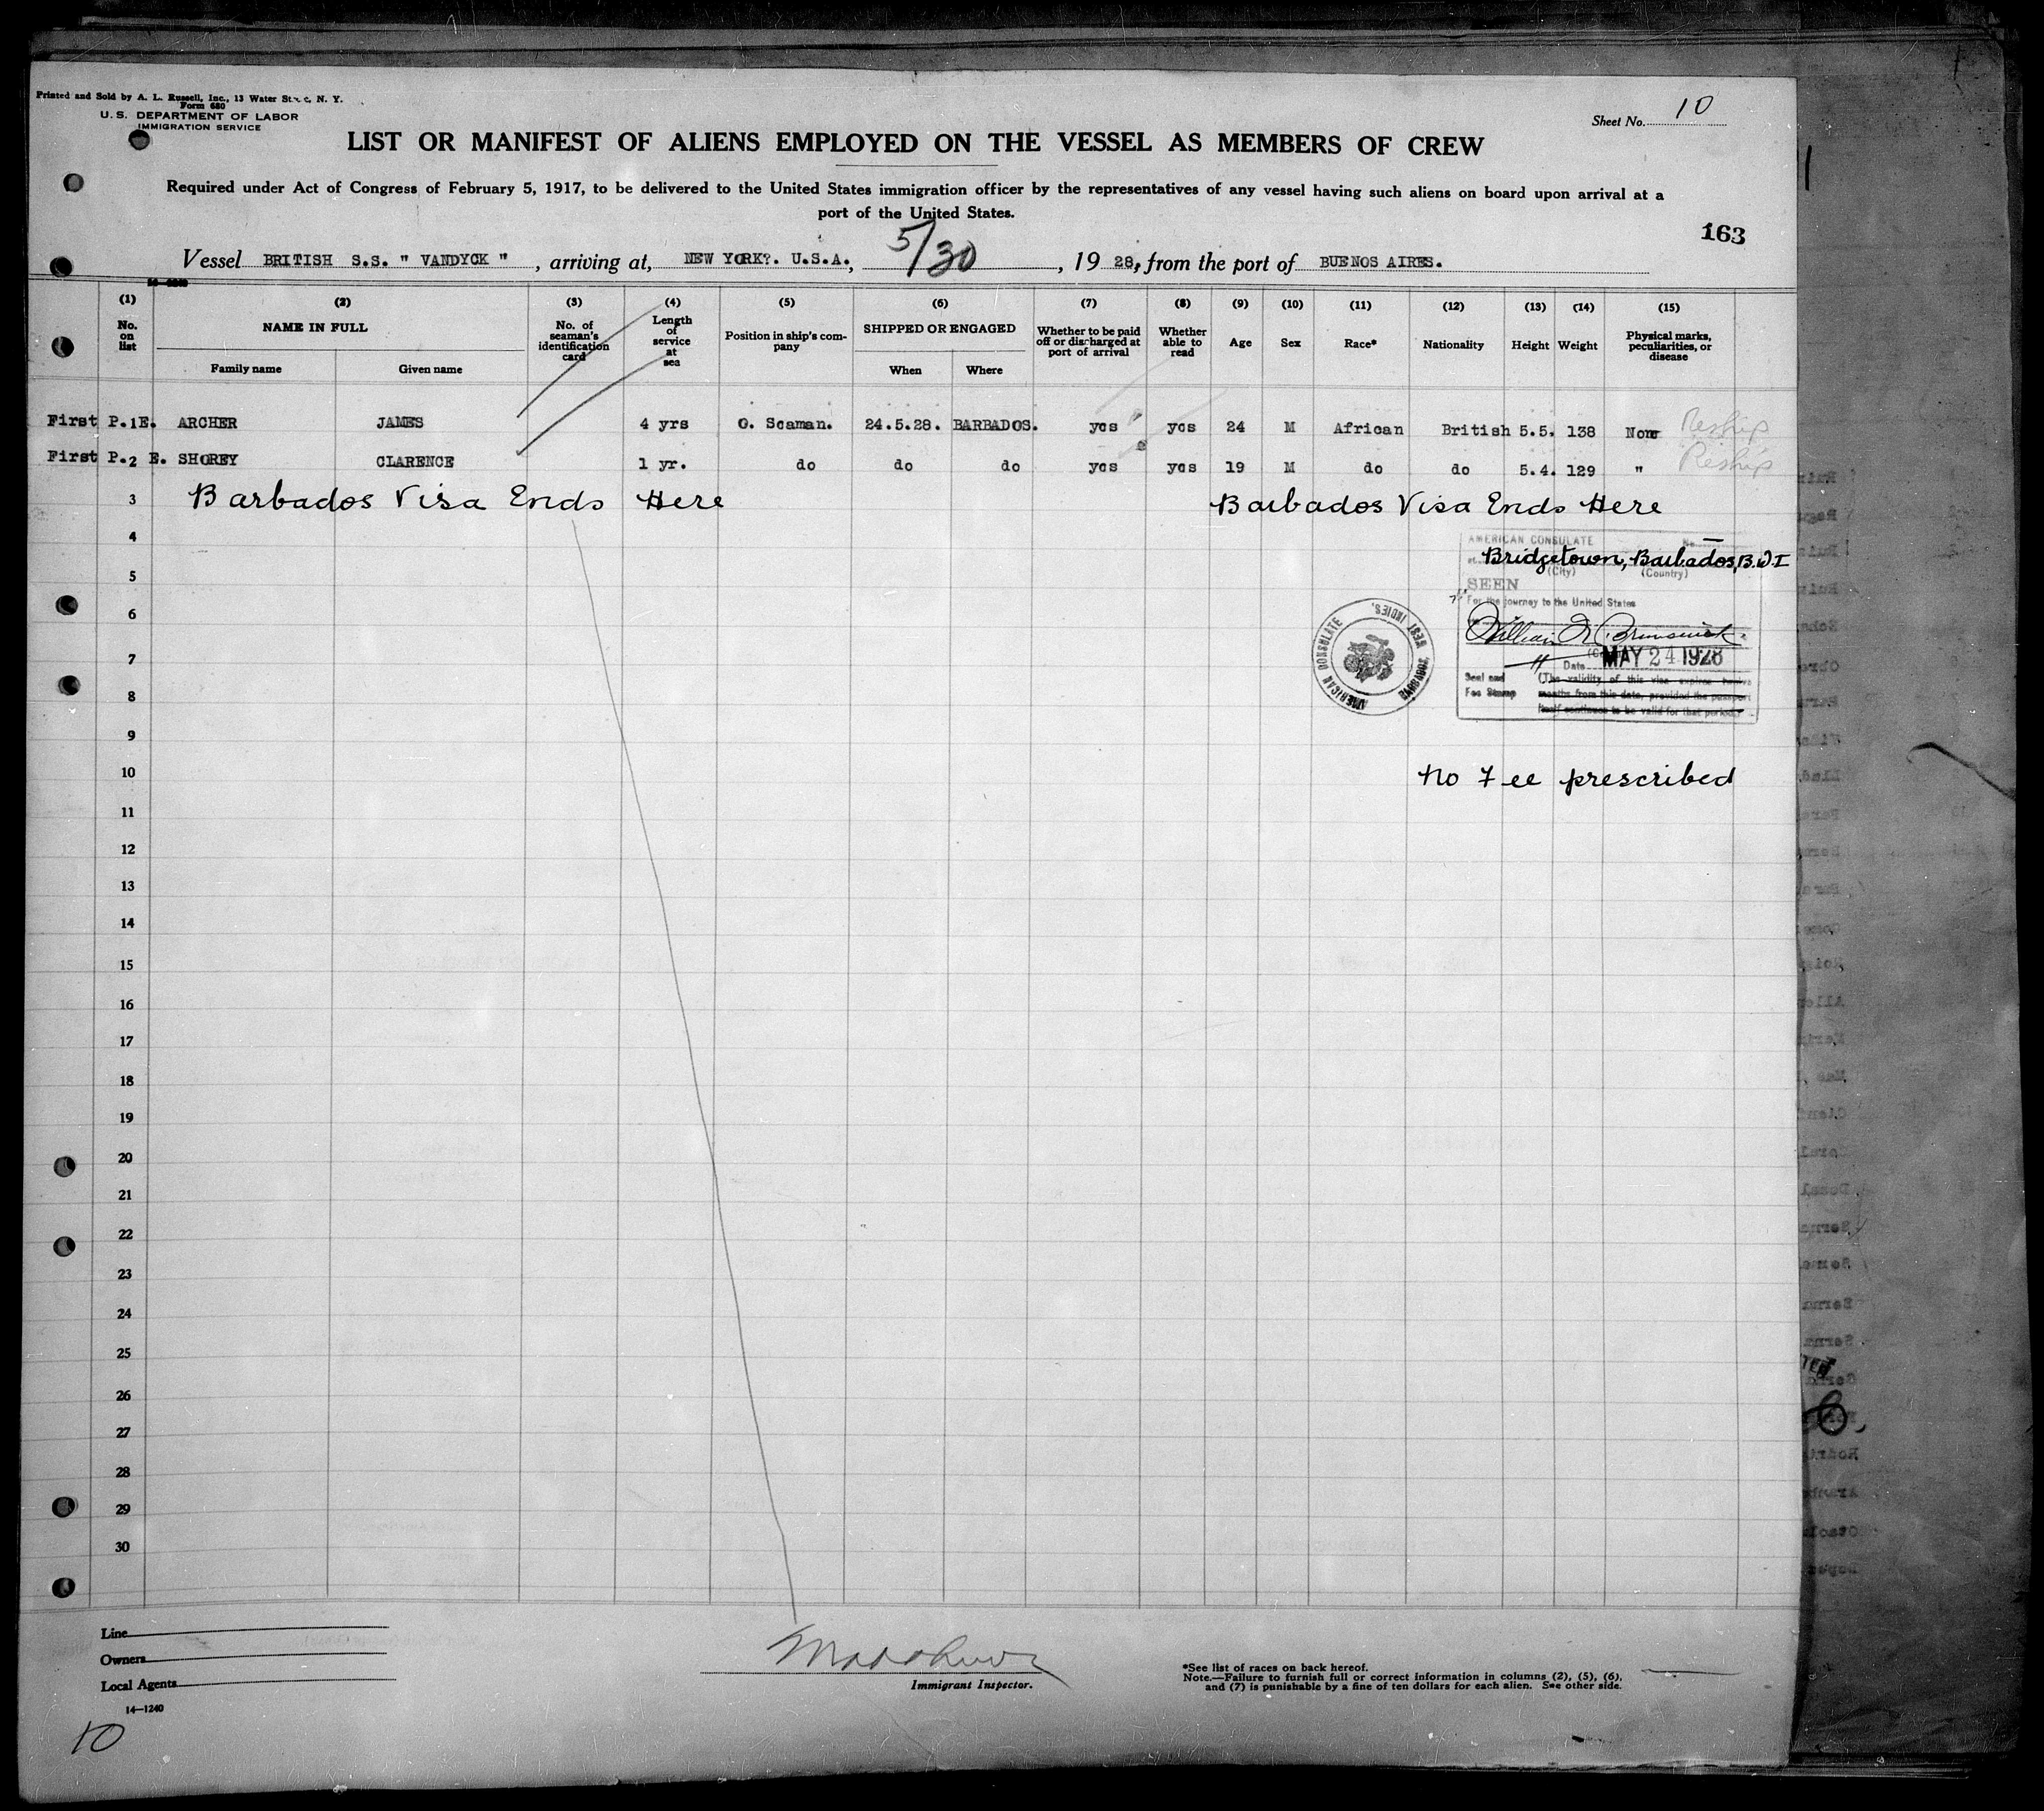 Printed and Sold by A. L. Russell, Inc., 13 Water St., N. Y.
Form 680
U. S. DEPARTMENT OF LABOR
IMMIGRATION SERVICE
Sheet No. 10
LIST OR MANIFEST OF ALIENS EMPLOYED ON THE VESSEL AS MEMBERS OF CREW
Required under Act of Congress of February 5, 1917, to be delivered to the United States immigration officer by the representatives of any vessel having such aliens on board upon arrival at a
port of the United States.
163
Vessel BRITISH S.S. " VANDYCK " , arriving at, NEW YORK?. U.S.A., 5/30 , 19 28, from the port of BUENOS AIRES.
(1) (2) (3) (4) (5) (6) (7) (8) (9) (10) (11) (12) (13) (14) (15)
No. on list NAME IN FULL Family name Given name No. of seaman's identification card Length of service at sea Position in ship's company SHIPPED OR ENGAGED When Where Whether to be paid off or discharged at port of arrival Whether able to read Age Sex Race* Nationality Height Weight Physical marks, peculiarities, or disease
First P.1E. ARCHER JAMES 4 yrs O. Seaman. 24.5.28. BARBADOS. yes yes 24 M African British 5.5. 138 None Reship
First P.2 E. SHOREY CLARENCE 1 yr. do do do yes yes 19 M do do 5.4. 129 " Reship
3 Barbados Visa Ends Here Barbados Visa Ends Here
4
AMERICAN CONSULATE No.
at Bridgetown, Barbados, B.W.I
(City) (Country)
5
SEEN
For the journey to the United States
6
William W Brunswick
7
Date MAY 24 1928
AMERICAN CONSULATE BARBADOS, WEST INDIES.
Seal and Fee Stamp
(The validity of this visa expires twelve
months from this date, provided the passport
itself continues to be valid for that period.)
8
9
10 No Fee prescribed
11
12
13
14
15
16
17
18
19
20
21
22
23
24
25
26
27
28
29
30
Line
Owners
Local Agents
14—1240
Immigrant Inspector.
*See list of races on back hereof.
Note.—Failure to furnish full or correct information in columns (2), (5), (6),
and (7) is punishable by a fine of ten dollars for each alien. See other side.
10